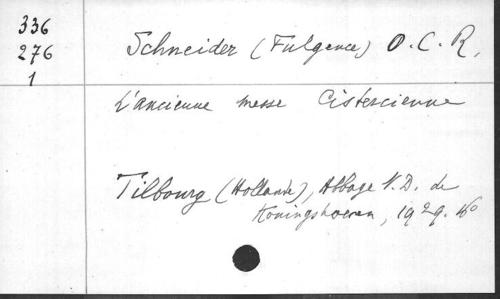 336
276
1
Schneider (Fulgence) O. C. R.
L'ancienne messe Cistercienne
Tilbourg (Hollande), Abbaye N. D. de
Koningshoeven, 1929. 16°